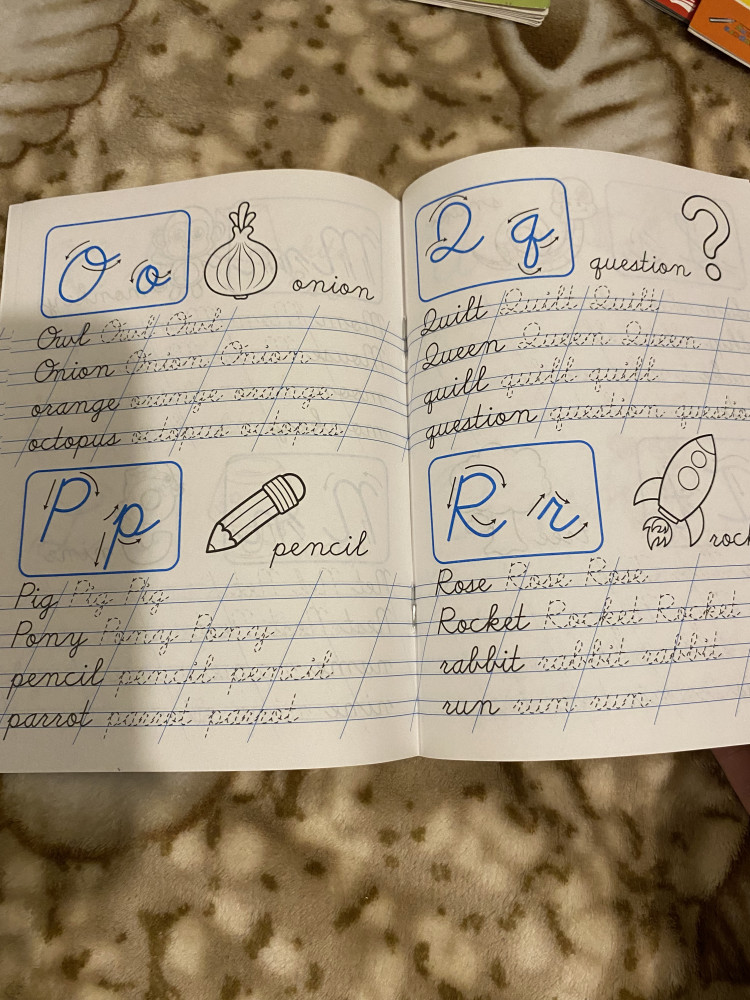 O o
onion
Owl Owl Owl
Onion Onion Onion
orange orange orange
octopus octopus octopus
P p
pencil
Pig Pig Pig
Pony Pony Pony
pencil pencil pencil
parrot parrot parrot
Q q
question
Quilt Quilt Quilt
Queen Queen Queen
quill quill quill
question question questio
R r
rock
Rose Rose Rose
Rocket Rocket Rocket
rabbit rabbit rabbit
run run run